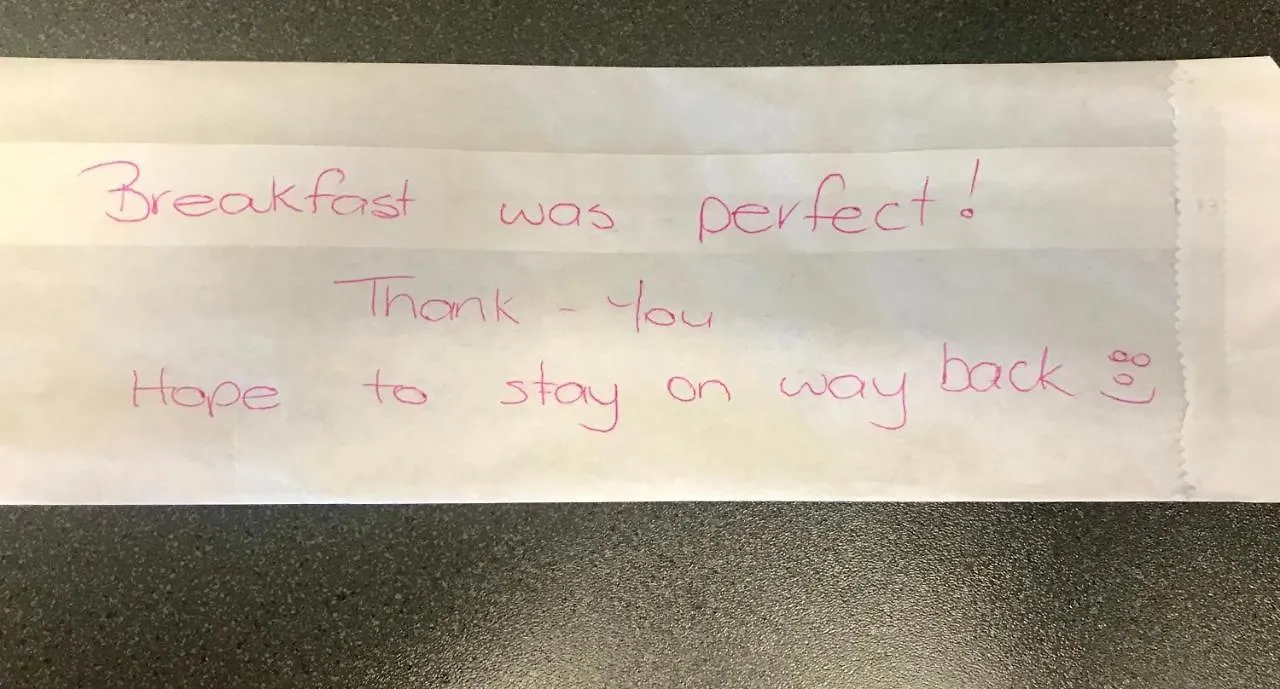 Breakfast was perfect!
Thank - You
Hope to stay on way back